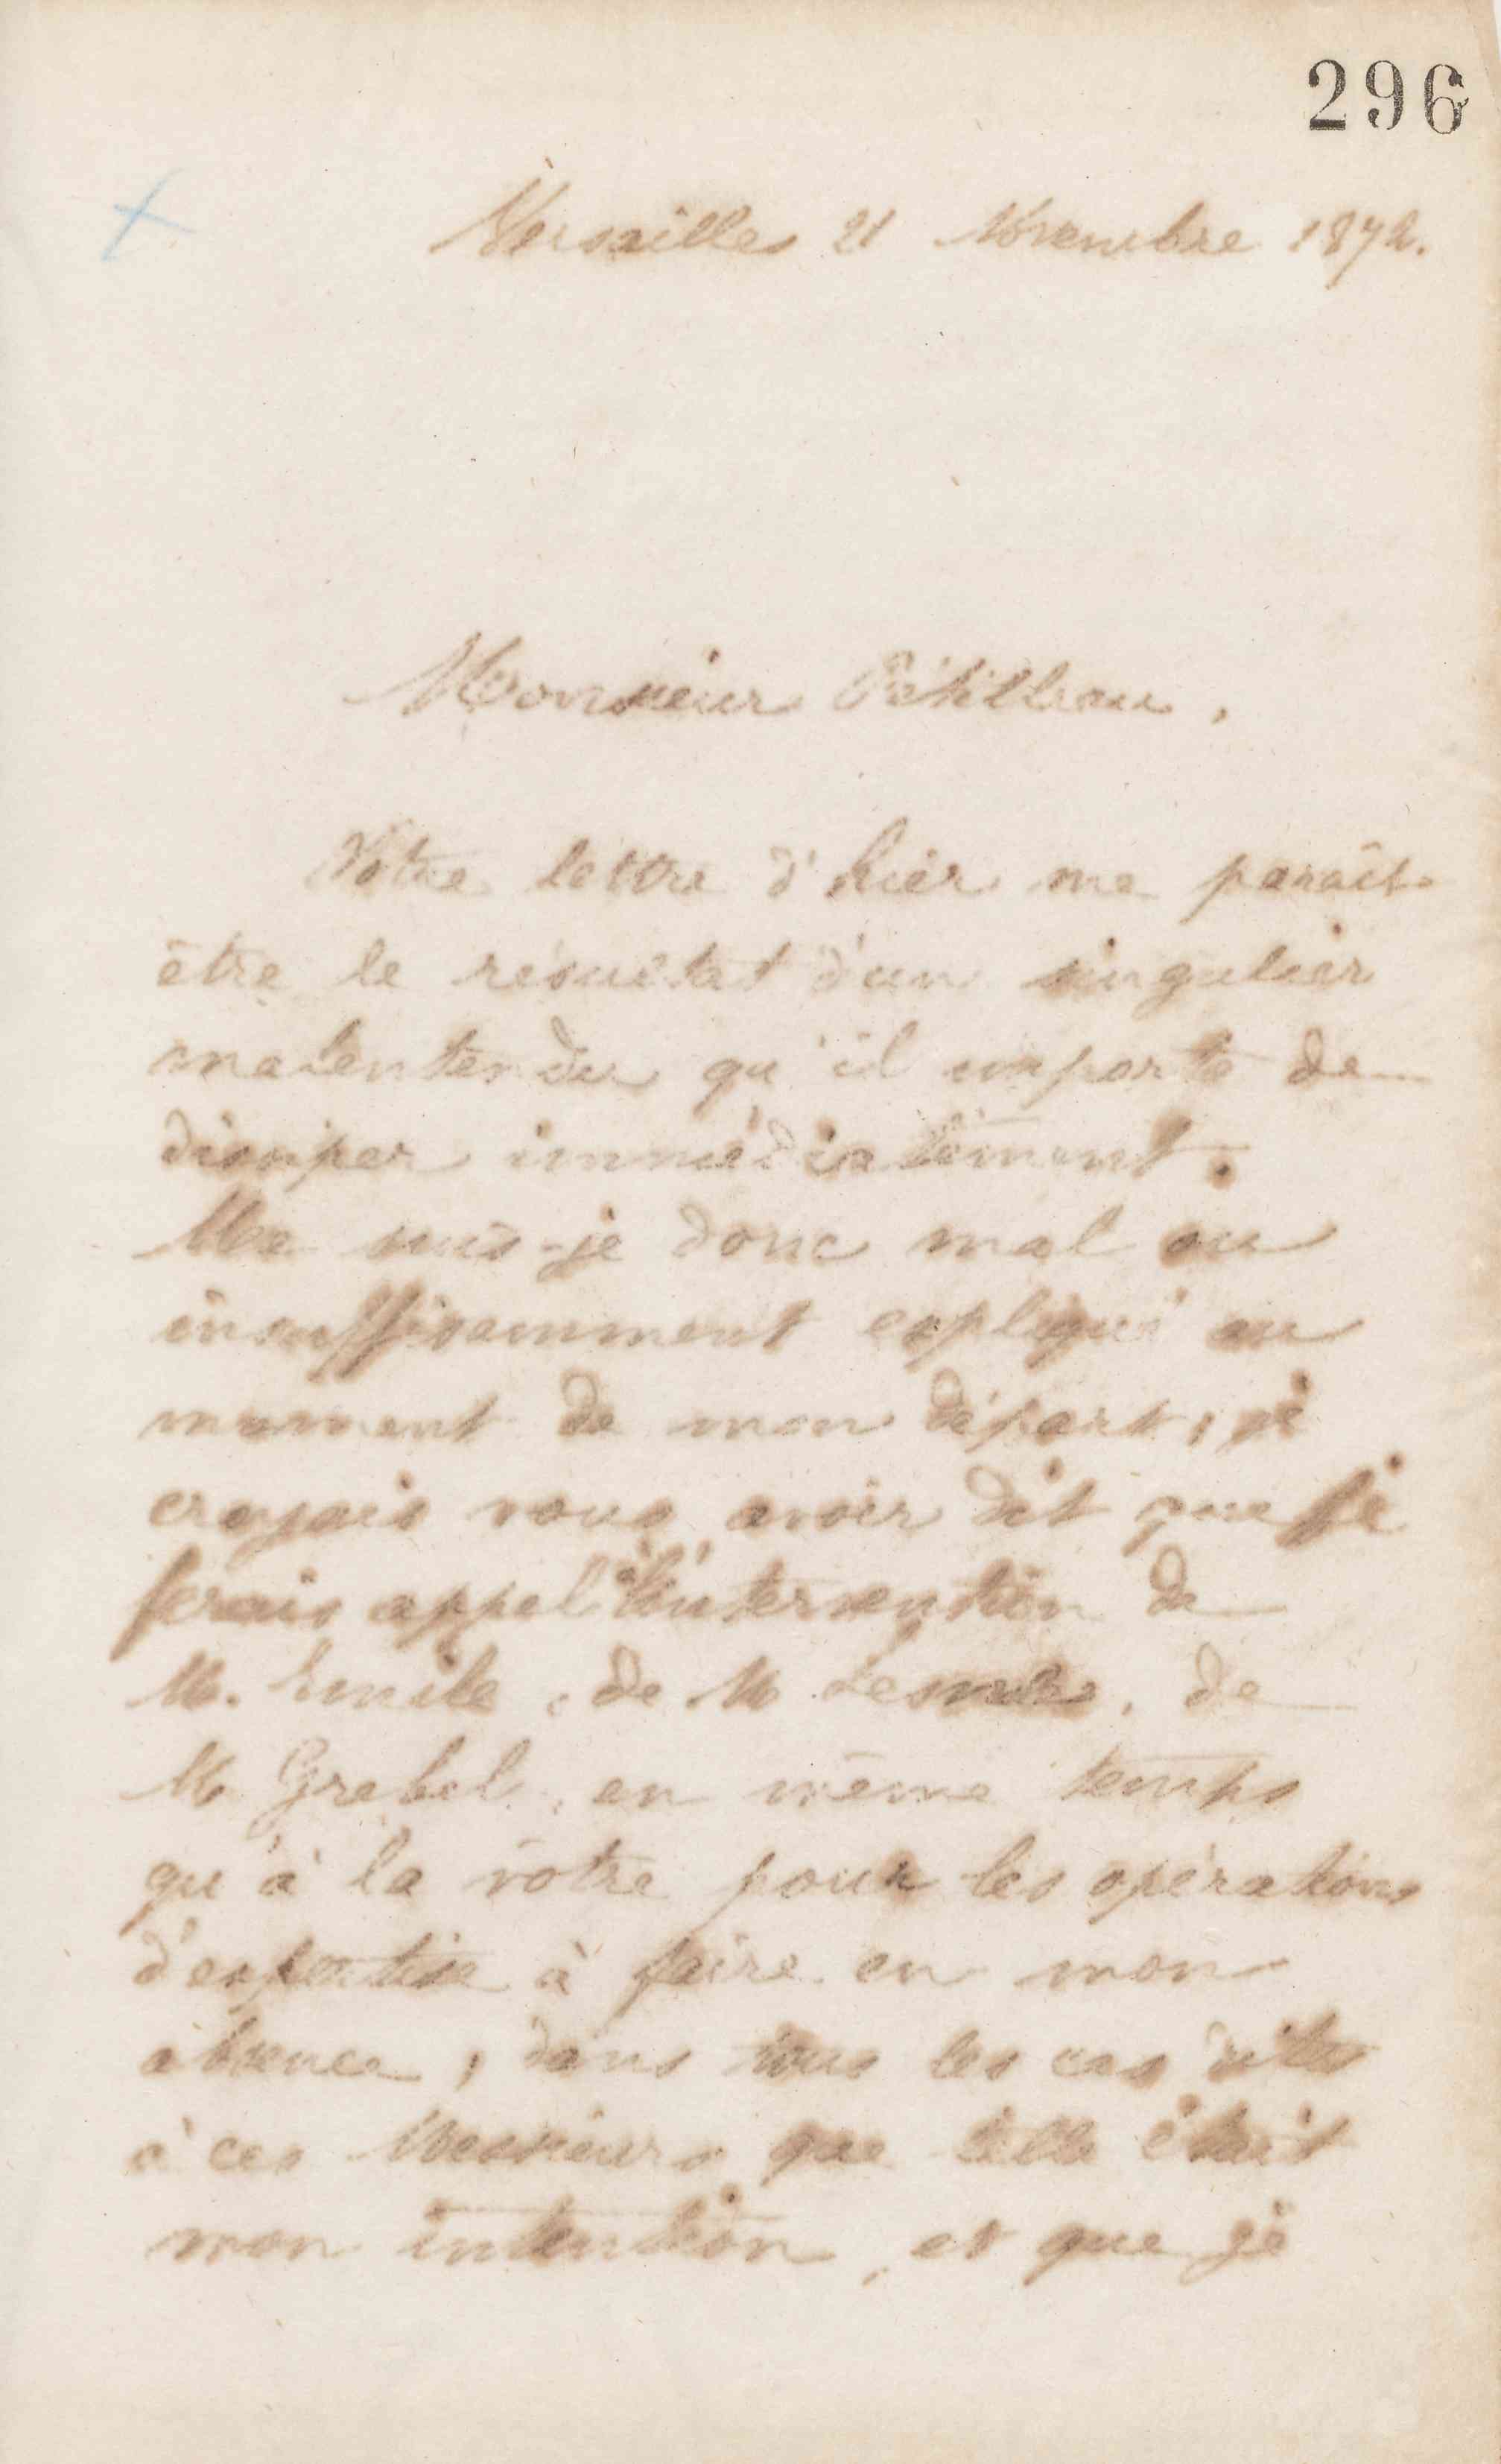 296
Versailles 21 Novembre 1872.
Monsieur Pétilleau,
Votre lettre d'hier me paraît
être le résultat d'un singulier
malentendu qu'il importe de
dissiper immédiatement.
Me suis-je donc mal ou
insuffisamment expliqué au
moment de mon départ, je
croyais vous avoir dit que je
ferais appel à l'intervention de
M. Emile, de M. de
M Grebel, en même temps
qu'à la vôtre pour les opérations
d'expertise à faire en mon
absence, dans tous les cas dites
à ces Messieurs que telle était
mon intention, et que je